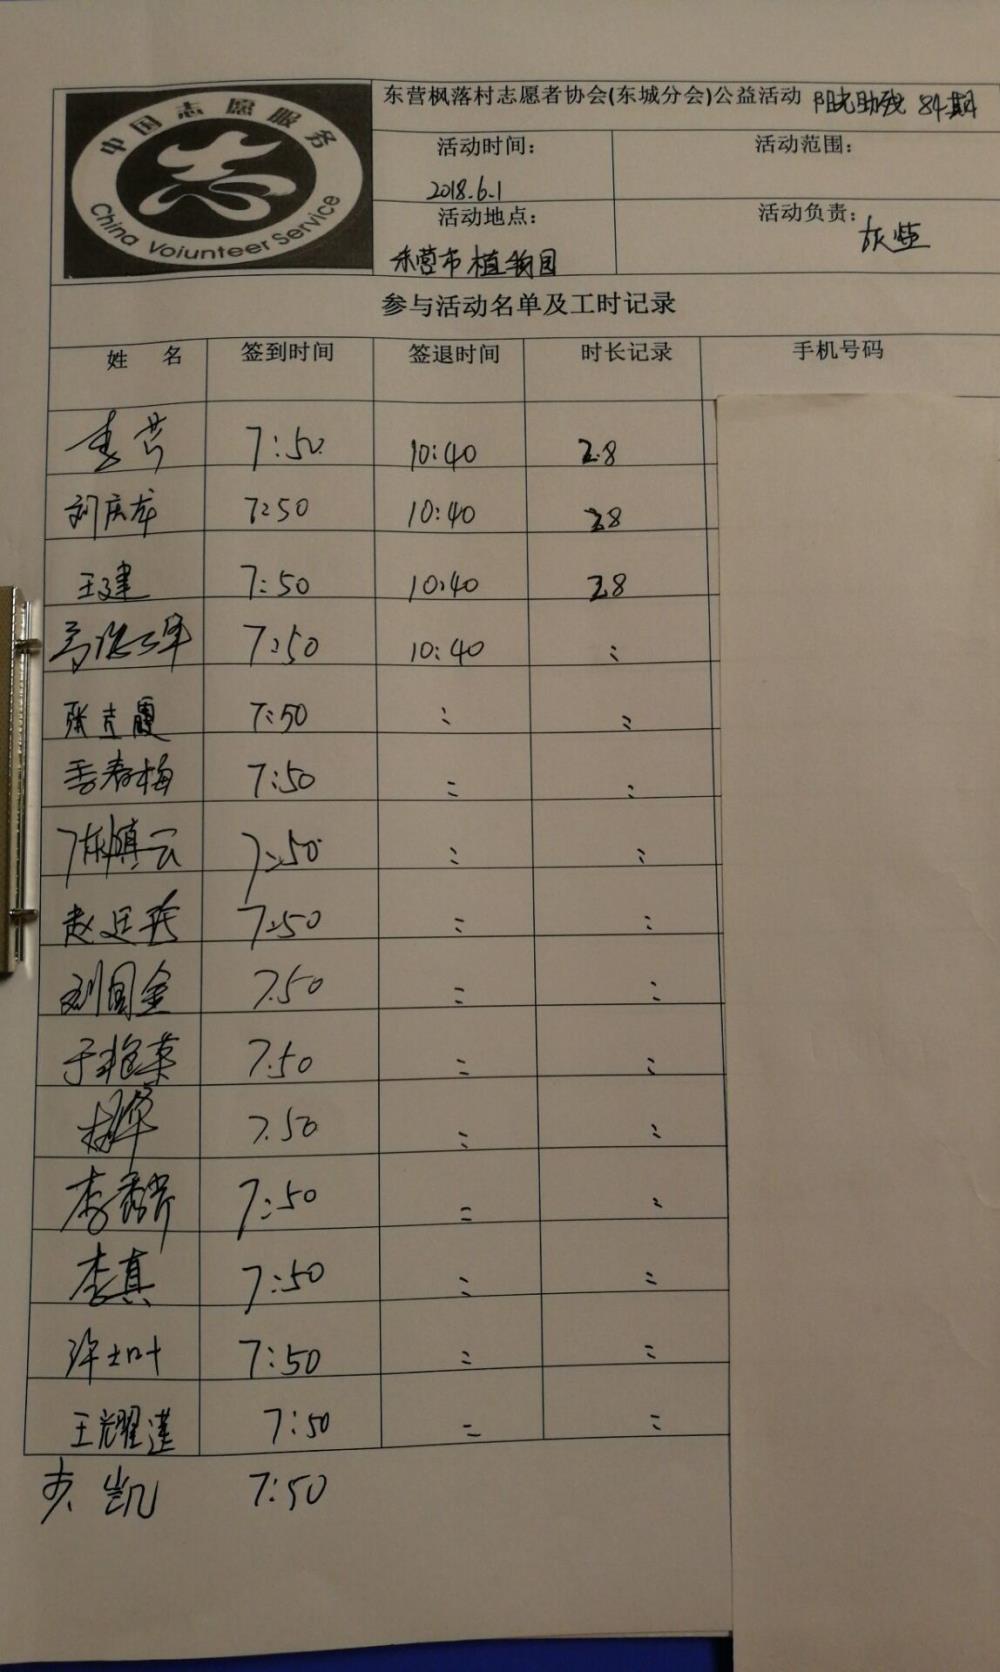 中国志愿服务
China Voiunteer Service
东营枫落村志愿者协会(东城分会)公益活动 阳光助残 84期
活动时间: 活动范围:
2018.6.1
活动地点: 活动负责:
东营市植物园
参与活动名单及工时记录
姓 名 签到时间 签退时间 时长记录 手机号码
李芹 7:50 10:40 2.8
刘庆龙 7:50 10:40 2.8
王建 7:50 10:40 2.8
7:50 10:40 :
张志霞 7:50 : :
季春梅 7:50 : :
陈慎云 7:50 : :
赵廷秀 7:50 : :
刘国金 7.50 : :
于艳菊 7.50 : :
杨华 7.50 : :
李秀芹 7:50 : :
李真 7:50 : :
许士叶 7:50 : :
王耀莲 7:50 : :
凯 7:50